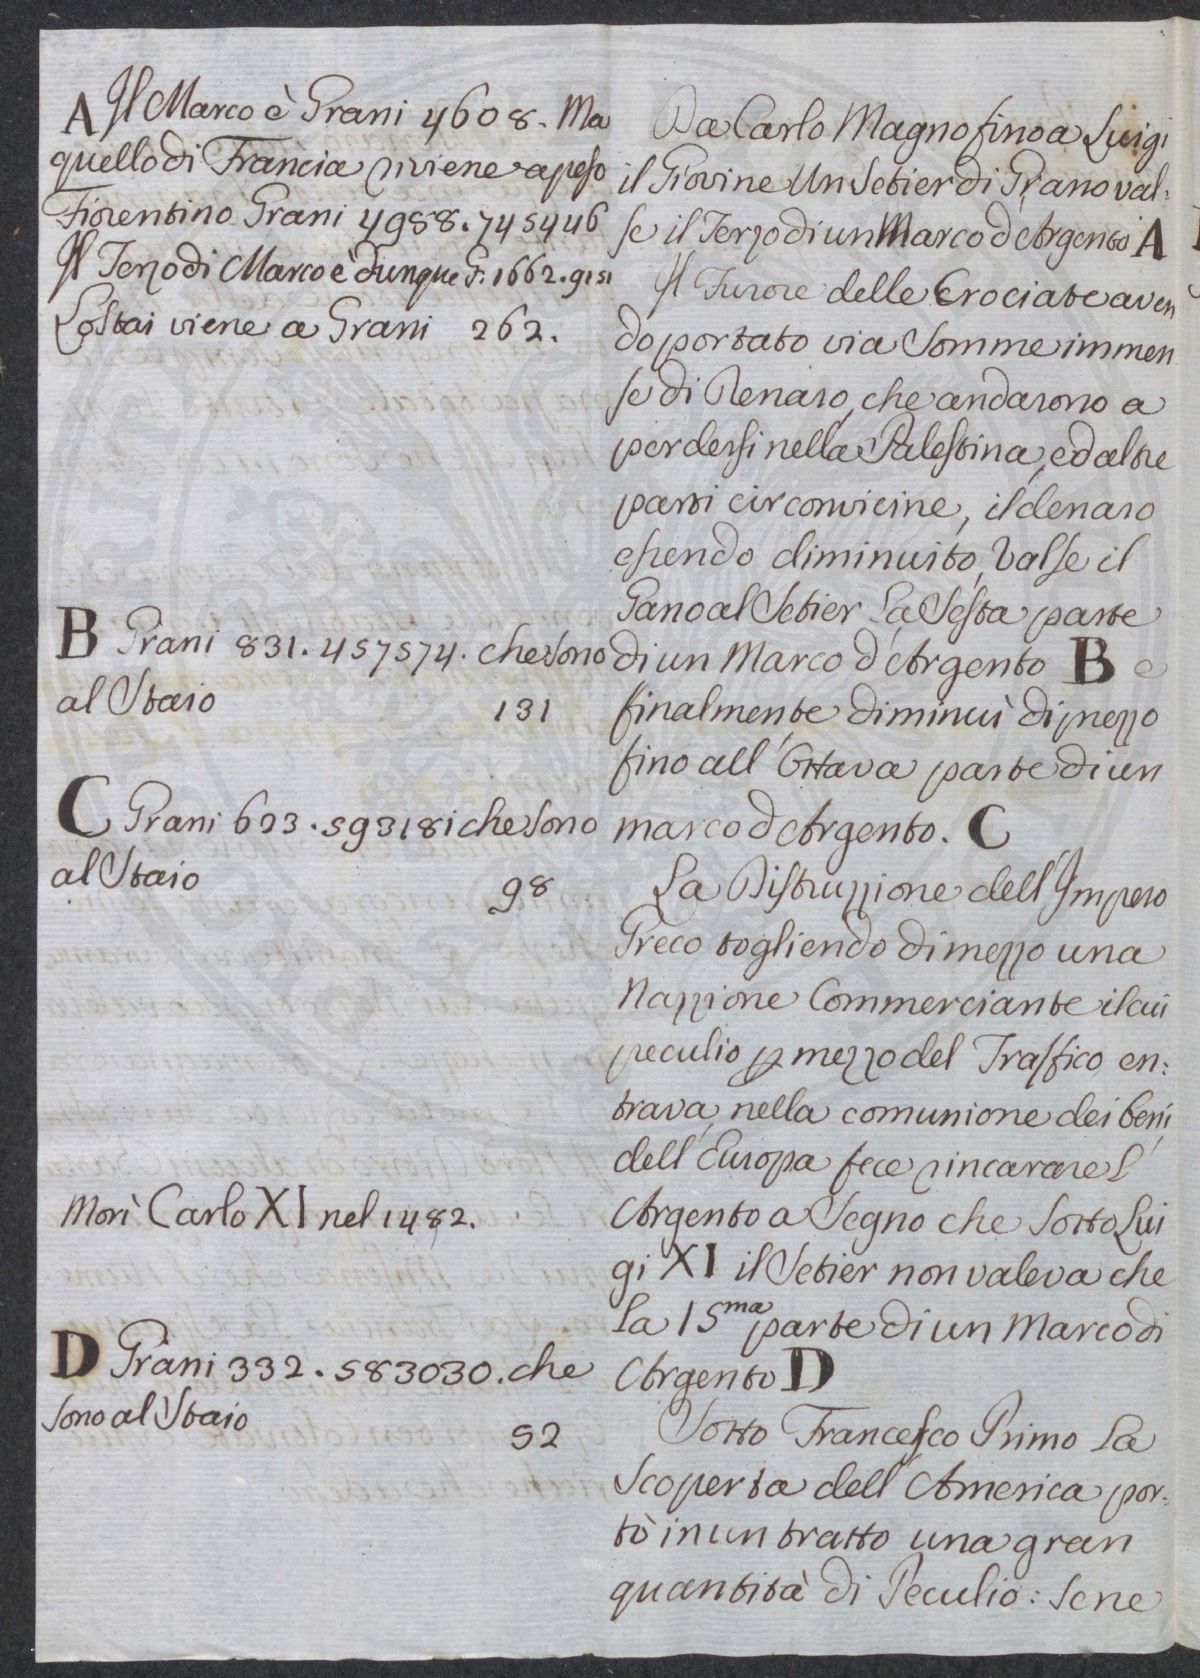 A Il Marco è Grani 4608. Ma
quello di Francia riviene a peso
Fiorentino Grani 4988.745446
Il Terzo di Marco è dunque G. 1662.9151
Lo Stai viene a Grani 262.
B Grani 831.457574. che sono
al Staio 131
C Grani 623.593181 che sono
al Staio 98
Morì Carlo XI nel 1482.
D Grani 332.583030. che
sono al Staio 52
Da Carlo Magno fino a Luigi
il Giovine Un Setier di Grano val:
se il Terzo di un Marco d'Argento A
Il Furore delle Crociate aven
do portato via Somme immen
se di Denaro, che andarono a
perdersi nella Palestina, ed altre
parti circonvicine, il denaro
essendo diminuito, Valse il
Gano al Setier La Sesta parte
di un Marco d'Argento B e
finalmente diminuì di prezzo
fino all'Ottava parte di un
marco d'Argento. C
La Distruzzione dell'Impero
Greco togliendo di mezzo una
Nazzione Commerciante il cui
peculio p mezzo del Traffico en:
trava nella comunione dei beni
dell'Europa fece rincarare l'
Argento a Segno che sotto Lui
gi XI il Setier non valeva che
La 15ma parte di un Marco di
Argento D
Sotto Francesco Primo La
Scoperta dell'America por:
tò in un tratto una gran
quantità di Peculio: Se ne